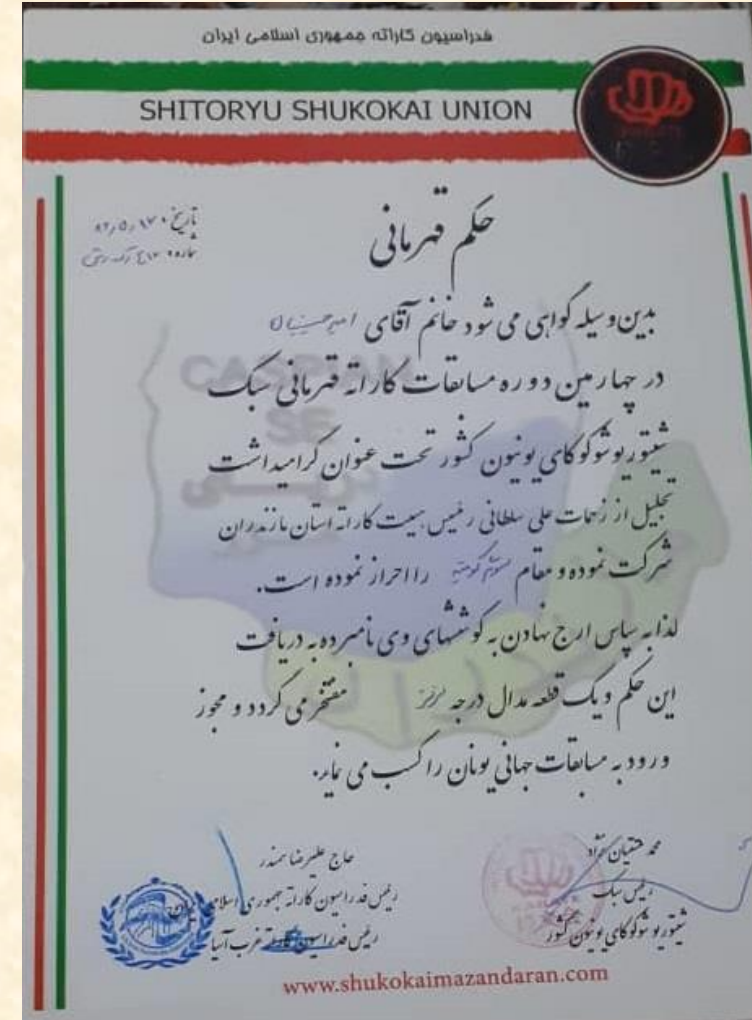 فدراسیون کاراته جمهوری اسلامی ایران
SHITORYU SHUKOKAI UNION
تاریخ
شماره
حکم قهرمانی
بدین وسیله گواهی می شود خانم آقای امیر حسینیان
در چهارمین دوره مسابقات کاراته قهرمانی سبک
شیتوریو شوکوکای یونیون کشور تحت عنوان گرامیداشت
تجلیل از زحمات علی سلطانی رئیس هیئت کاراته استان مازندران
شرکت نموده و مقام سوم کومیته را احراز نموده است.
لذا به پاس ارج نهادن به کوششهای وی نامبرده به دریافت
این حکم و یک قطعه مدال درجه برنز مفتخر می گردد و مجوز
ورود به مسابقات جهانی یونان را کسب می نماید.
CASPIAN
SE
محمد حشتیان نژاد
رئیس سبک
شیتوریو شوکوکای یونیون کشور
حاج علیرضا سمندر
رئیس فدراسیون کاراته جمهوری اسلامی ایران
رئیس فدراسیون کاراته غرب آسیا
www.shukokaimazandaran.com